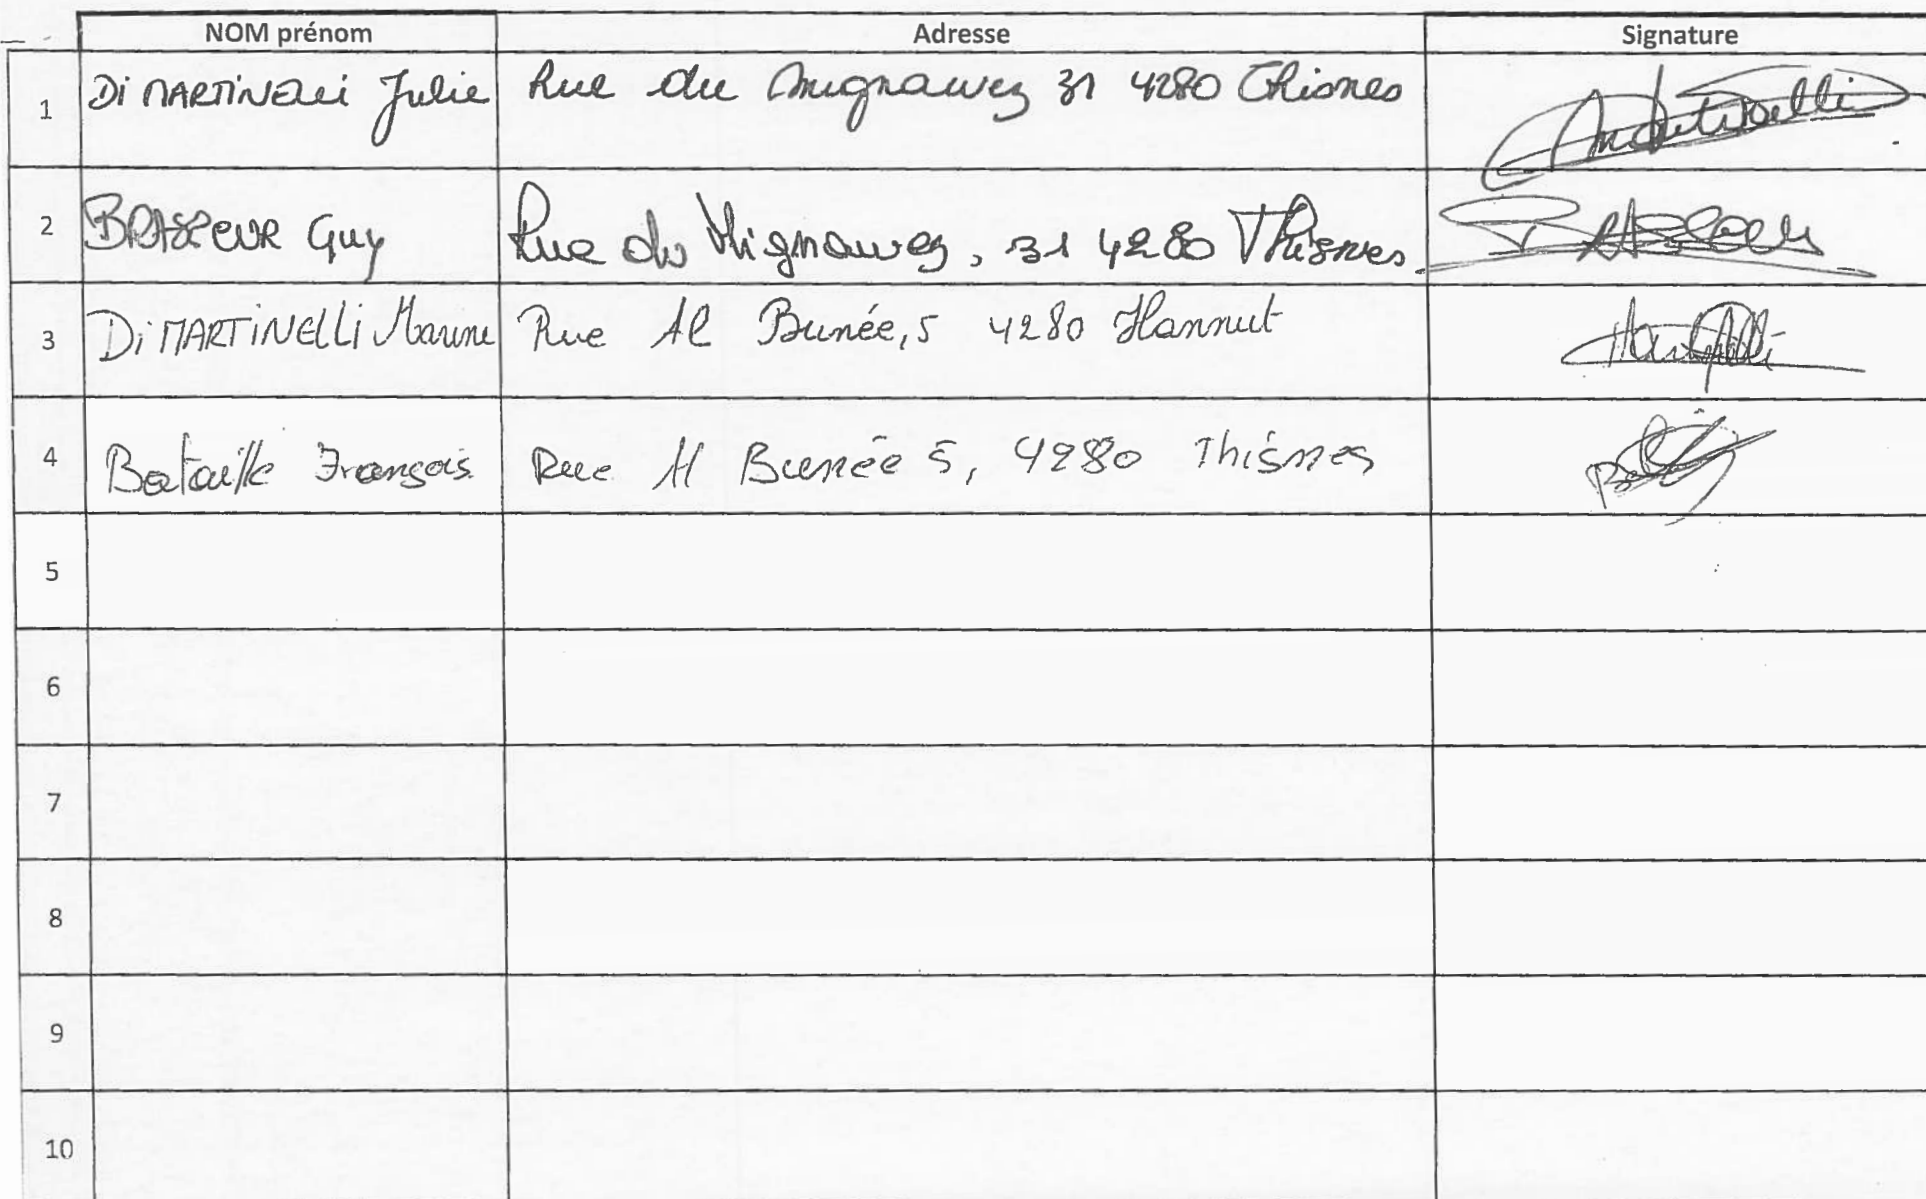 NOM prénom Adresse Signature
1 Di MARTINELLi Julie Rue du Mignawez 31 4280 Thisnes
2 BRASSEUR Guy Rue du Mignawez, 31 4280 Thisnes
3 Di MARTINELLi Marine Rue Al Bunée, 5 4280 Hannut
4 Bataille François Rue Al Bunée 5, 4280 Thisnes
5
6
7
8
9
10